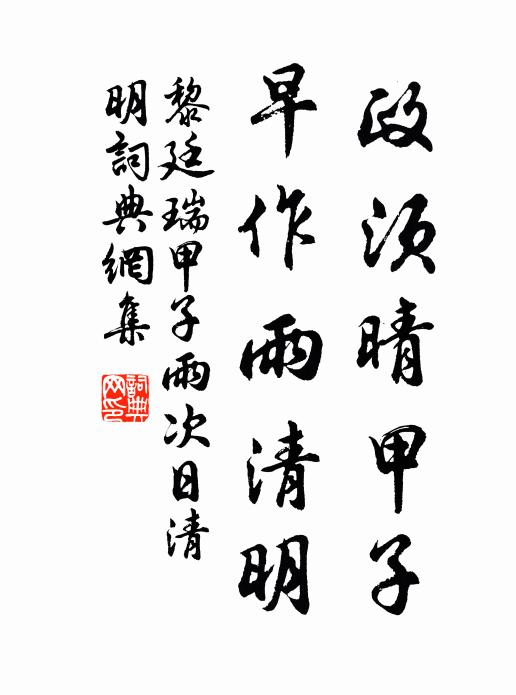 政須晴甲子
早作雨清明
黎廷瑞甲子雨次日清
明詞典網集
詞典
网印